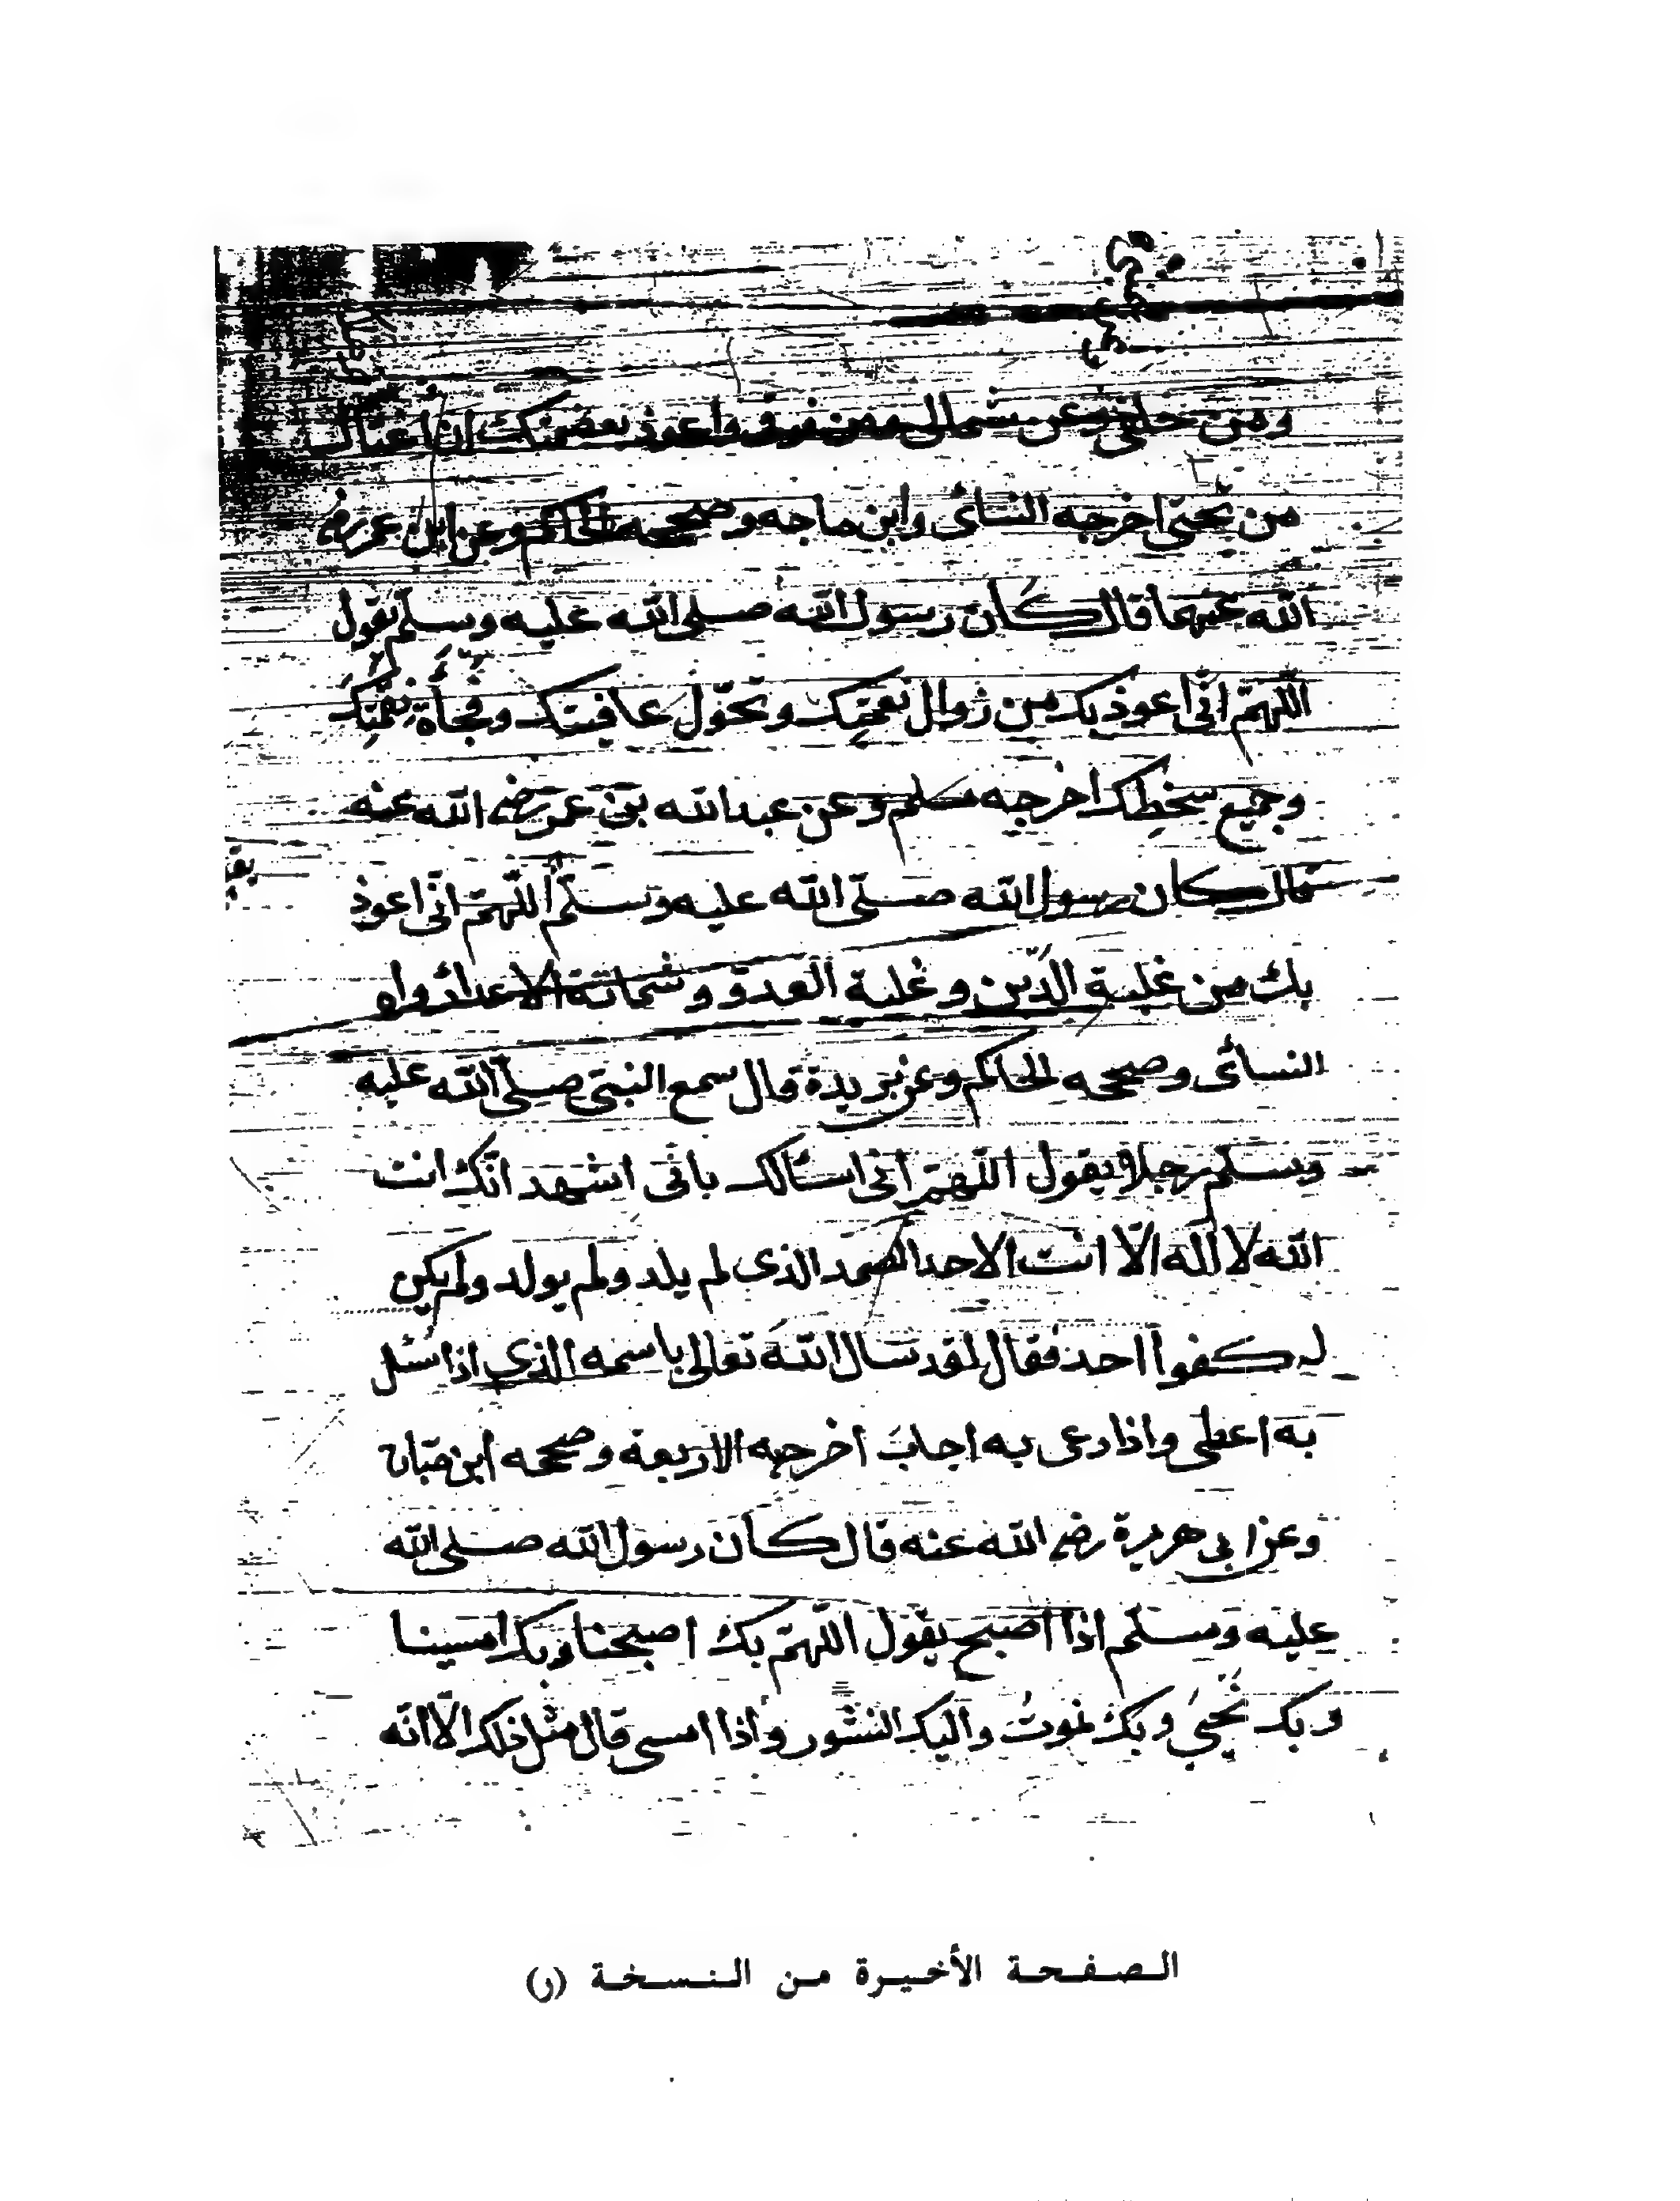 ومن خلفي وعن شمالي ومن فوقي واعوذ بعضمتك ان اغتال
من تحتى اخرجه النسائى وابن ماجه وصححه الحاكم وعن ابن عمر رضى
الله عنهما قال كان رسول الله صلى الله عليه وسلم يقول
اللّهمّ انّى اعوذ بك من زوال نعمتِك وتحوّل عافيتك وفُجأةِ نِقمَتِكَ
وجميع سخطِك اخرجه مسلم وعن عبدالله بن عمر رضى الله عنه
قال كان رسول الله صلّى الله عليه وسلّم اللّهمّ انّى اعوذ
بك من غلبة الدَّين وغلبة العدوّ وشماتة الاعداء رواه
النسائى وصححه الحاكم وعن بريدة قال سمع النبىّ صلّى الله عليه
وسلم رجلا يقول اللّهمّ انى اسئالك بانّى اشهد انّك انت
الله لا اله الّا انت الاحد الصمد الذى لم يلد ولم يولد ولم يكن
له كفواً احد فقال لقد سال الله تعالى باسمه الذي اذا سُئل
به اعطى واذا دعى به اجابَ اخرجه الاربعة وصححه ابن حبّان
وعن ابى هريرة رضى الله عنه قال كان رسول الله صلى الله
عليه وسلّم اذا اصبح يقول اللّهمّ بك اصبحنا وبك امسينا
وبك نَحْيَي وبك نموتُ واليك النشور واذا امسى قال مثل ذلك الّا انّه
الصفحة الأخيرة من النسخة (و)